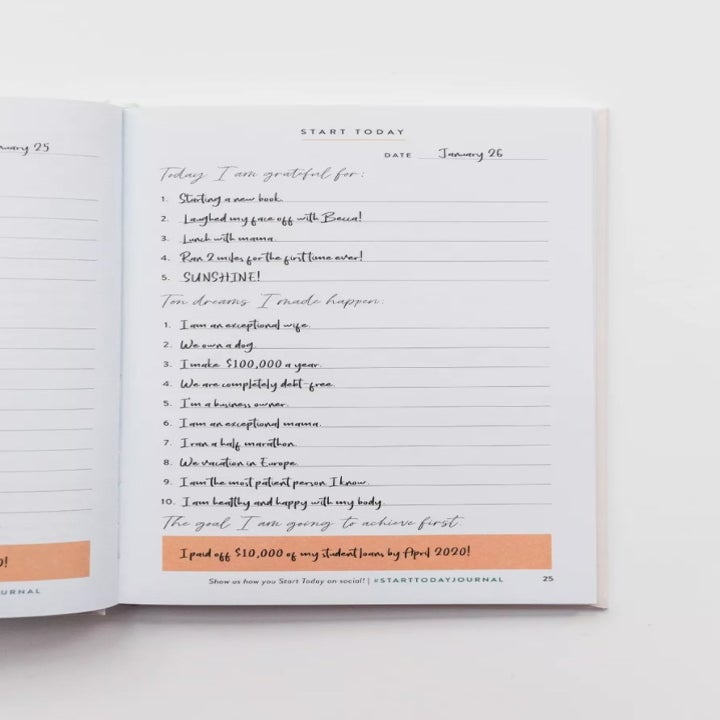 START TODAY
nuary 25
DATE January 26
Today I am grateful for:
1. Starting a new book.
2. Laughed my face off with Becca!
3. Lunch with mama.
4. Ran 2 miles for the first time ever!
5. SUNSHINE!
Ten dreams I made happen:
1. I am an exceptional wife.
2. We own a dog.
3. I make $100,000 a year.
4. We are completely debt-free.
5. I'm a business owner.
6. I am an exceptional mama.
7. I ran a half marathon.
8. We vacation in Europe.
9. I am the most patient person I know.
10. I am healthy and happy with my body.
The goal I am going to achieve first:
I paid off $10,000 of my student loans by April 2020!
0!
Show us how you Start Today on social! | #STARTTODAYJOURNAL 25
URNAL